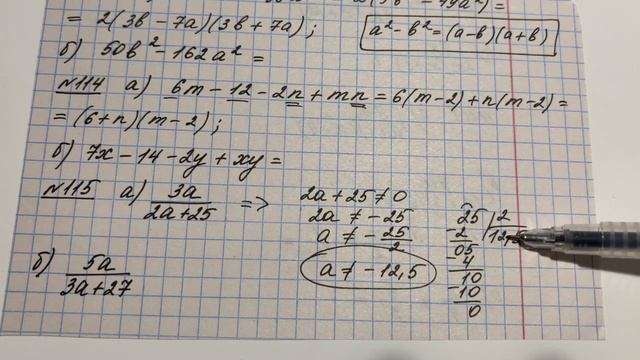 = 2(3в - 7а)(3в + 7а);
а² - в² = (а-в)(а+в)
б) 50в² - 162а² =
№114 а) 6m - 12 - 2n + mn = 6(m-2) + n(m-2) =
= (6+n)(m-2);
б) 7x - 14 - 2y + xy =
№115 а) 3а/(2а+25) =>
2а + 25 ≠ 0
2а ≠ -25
а ≠ -25/2
а ≠ -12,5
25 | 2
2 | 12,5
05
4
10
10
0
б) 5а/(3а+27)